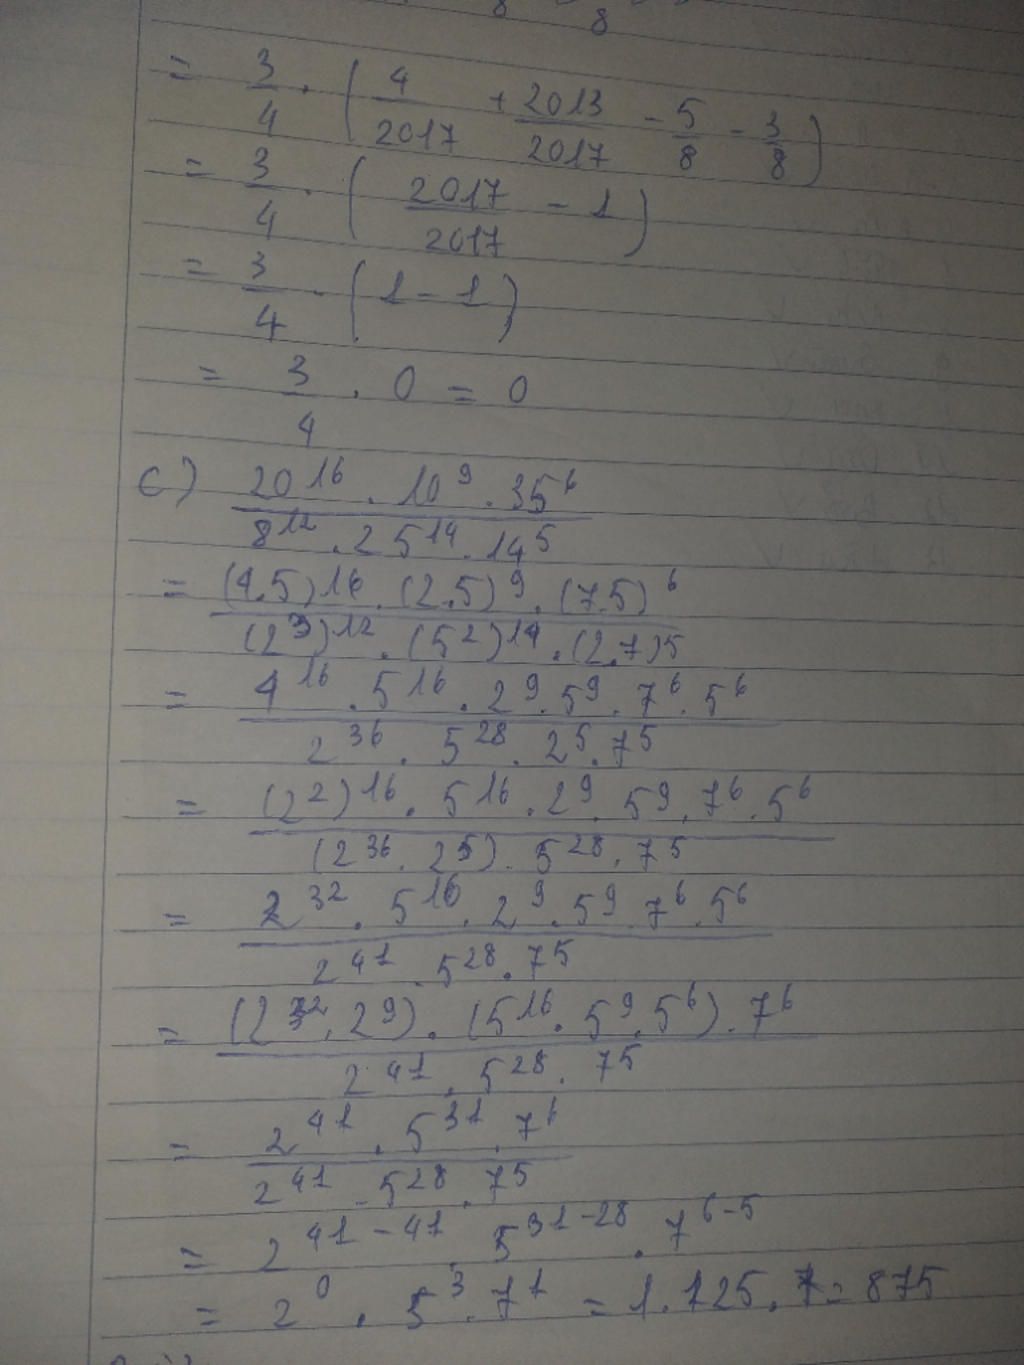 8 8
= 3/4 . ( 4/2017 + 2013/2017 - 5/8 - 3/8 )
= 3/4 . ( 2017/2017 - 1 )
= 3/4 . ( 1 - 1 )
= 3/4 . 0 = 0
c) (20^16 . 10^9 . 35^6) / (8^12 . 25^14 . 14^5)
= ((4.5)^16 . (2.5)^9 . (7.5)^6) / ((2^3)^12 . (5^2)^14 . (2.7)^5)
= (4^16 . 5^16 . 2^9 . 5^9 . 7^6 . 5^6) / (2^36 . 5^28 . 2^5 . 7^5)
= ((2^2)^16 . 5^16 . 2^9 . 5^9 . 7^6 . 5^6) / ((2^36 . 2^5) . 5^28 . 7^5)
= (2^32 . 5^16 . 2^9 . 5^9 . 7^6 . 5^6) / (2^41 . 5^28 . 7^5)
= ((2^32 . 2^9) . (5^16 . 5^9 . 5^6) . 7^6) / (2^41 . 5^28 . 7^5)
= (2^41 . 5^31 . 7^6) / (2^41 . 5^28 . 7^5)
= 2^41-41 . 5^31-28 . 7^6-5
= 2^0 . 5^3 . 7^1 = 1 . 125 . 7 = 875